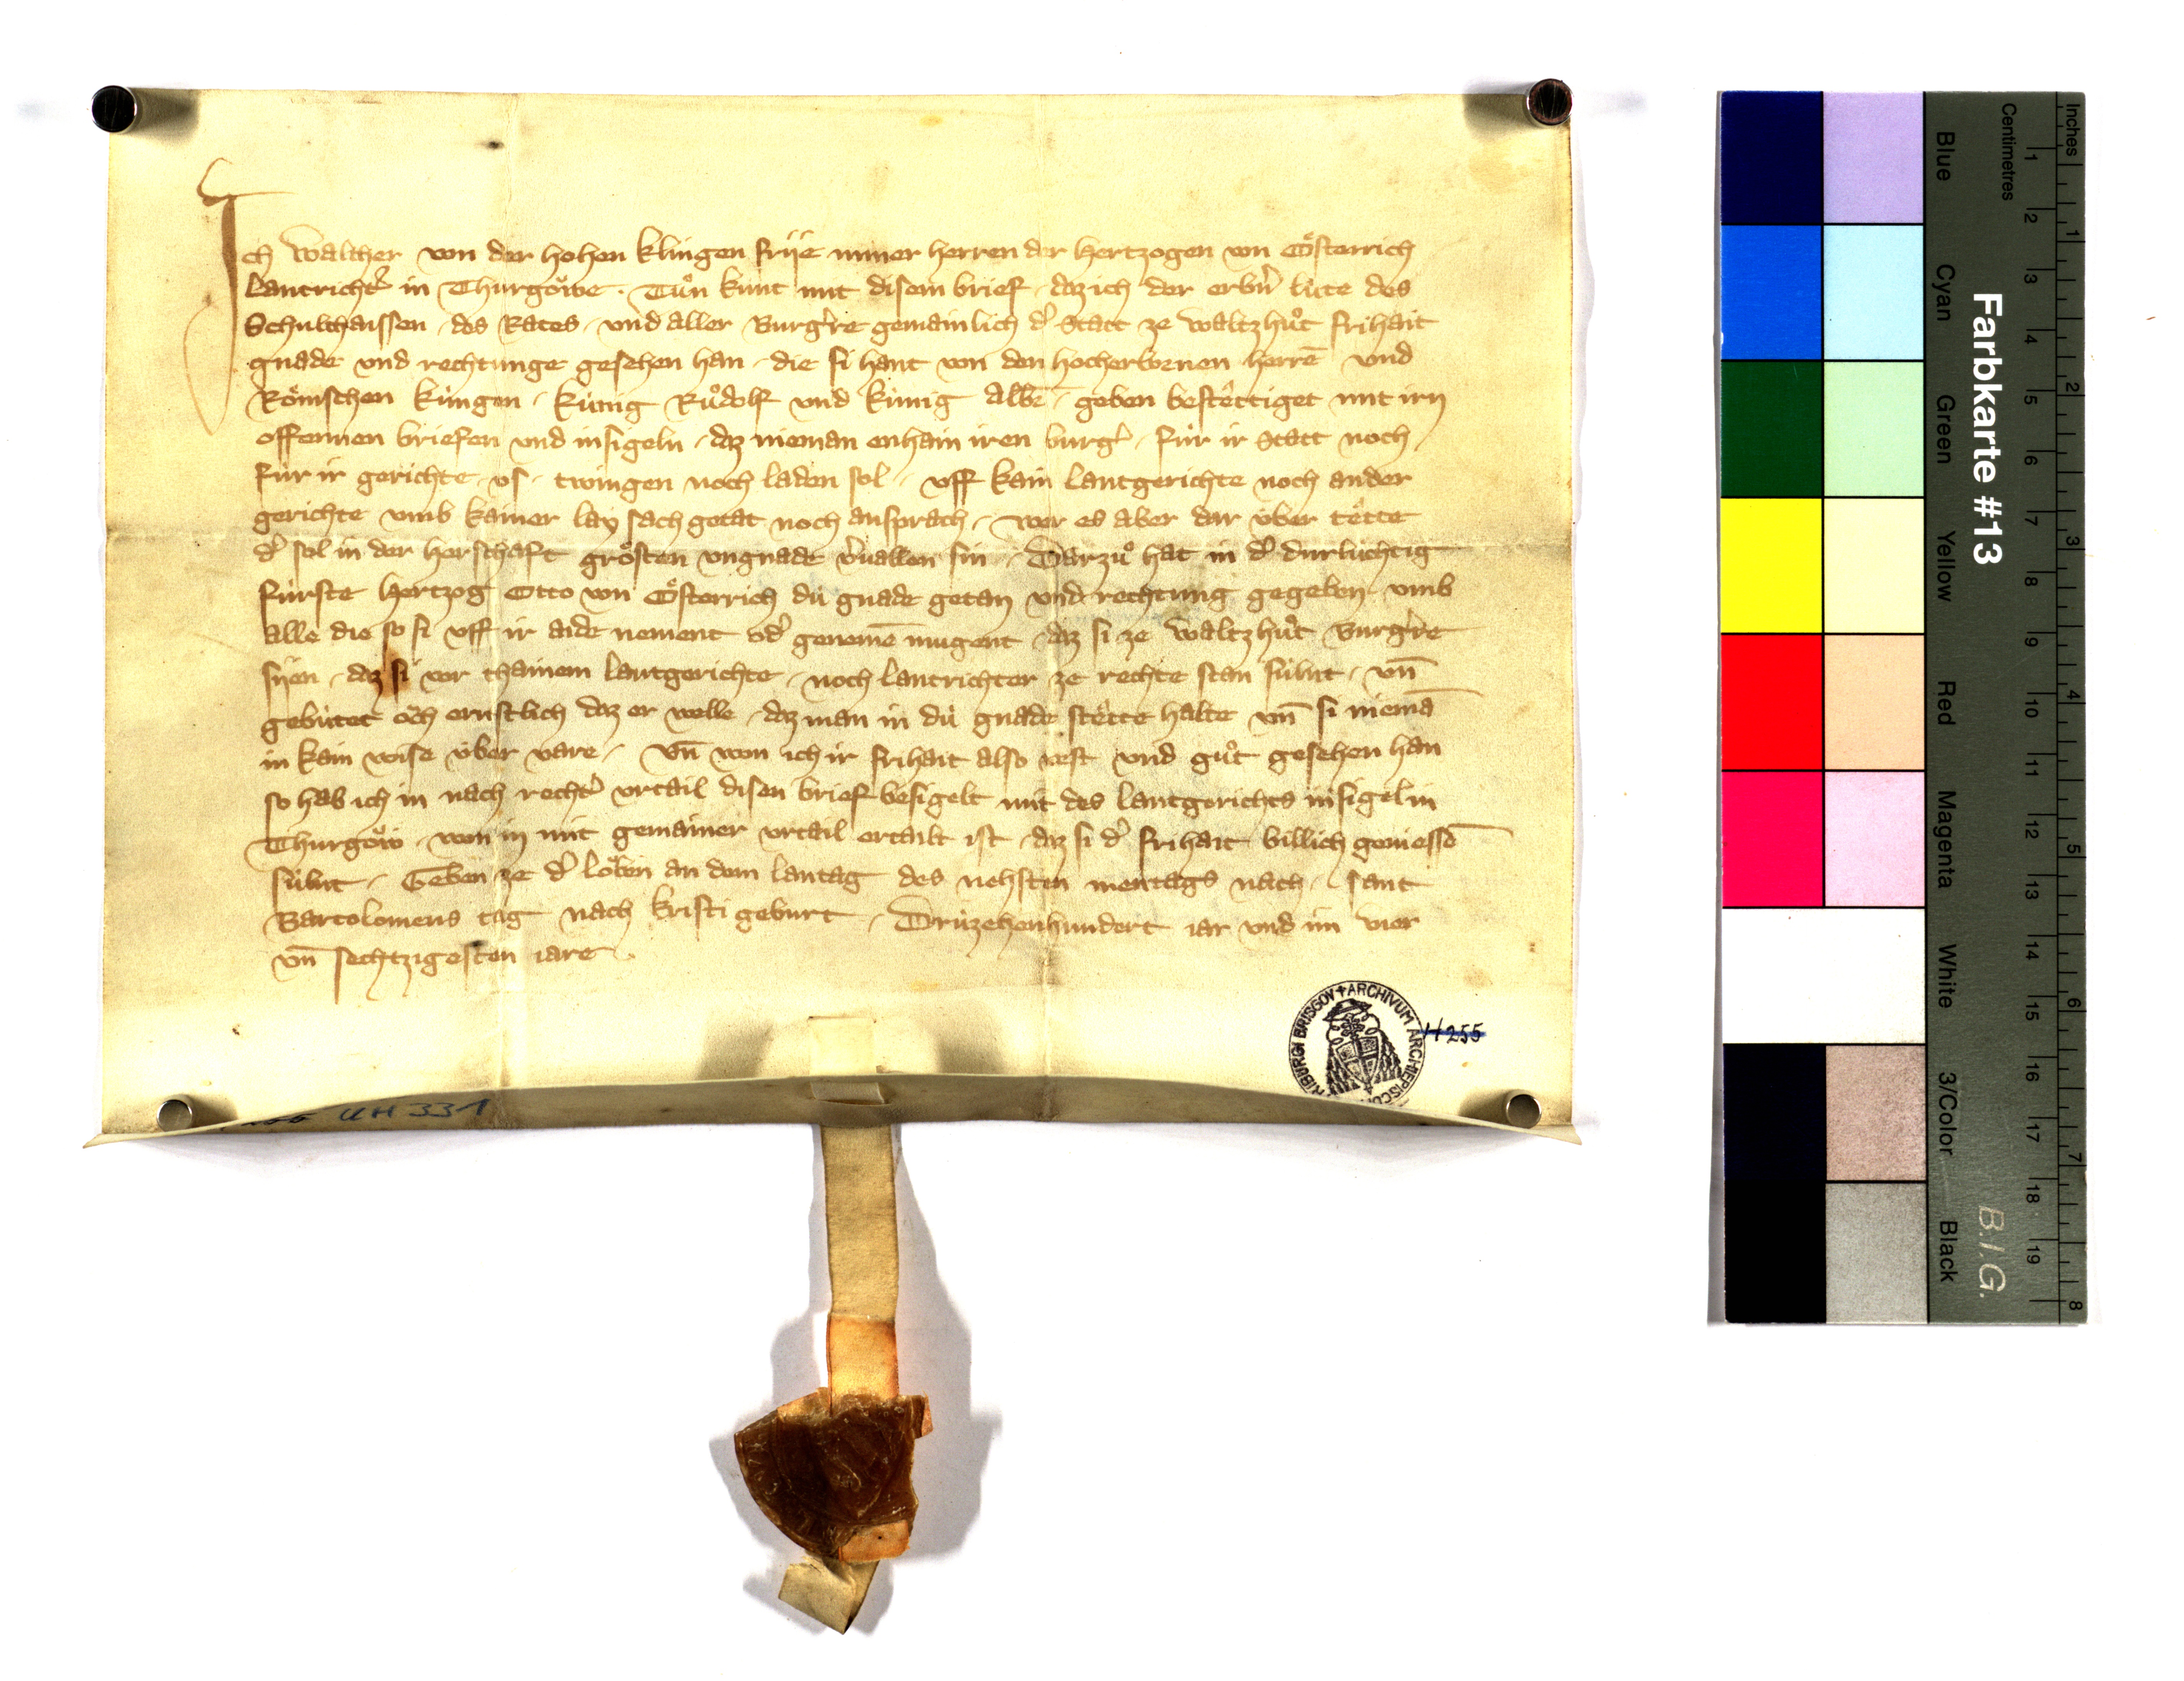 Ich walther von der hohen klingen frije miner herren der hertzogen von Oͤsterrich
lantricht͛ in Thurgoͤwe · Tuͦn kunt mit disem brief · daz ich der erbn͛ luͤte des
Schulthaissen · des Rates · vnd aller Burg͛re gemainlich d͛ Statt ze waltzhuͦt frihait
gnade vnd rechtunge gesehen han · die si hant von den hocherbornen herrē vnd
Roͤmschen kuͤngen · kuͤnig Ruͦdolf vnd kuͤnig Albr̄ · geben bestêttiget mit irn
offennen briefen vnd insigeln · daz nieman enhain iren burg͛ · fuͤr ir Statt noch
fuͤr ir gerichte · vs · twingen noch laden sol · vff kain lantgerichte noch ander
gerichte vmb kainer lay sach getat noch ansprach · wer es aber dar uͤber têtte
d͛ sol in der herschaft groͤsten vngnade v͛uallen sin · Darzuͦ hat in d͛ durluͤchtig
fuͤrste hertzog Otto von Oͤsterrich duͤ gnade getan vnd rechtung gegeben vmb
alle die so si vff ir aide nement od͛ genemē mugent · daz si ze waltzhuͦt Burg͛re
sijen · daz si vor thainem lantgerichte · noch lantrichter ze rechte stan suͤlnt · vn̄
gebuͤtet oͮch ernstlich daz er welle · daz man in duͤ gnade stêtte halte vn̄ si niemā
in kain wise uͤber vare · Vn̄ won ich ir frihait also vest vnd guͦt gesehen han
so hab ich in nach recht͛ vrtail disen brief besigelt mit des lantgerichts insigel in
Thurgoͤw · won in mit gemainer vrtail ertailt ist · daz si d͛ frihait billich geniessē
suͤlnt · Geben ze d͛ loͤben an dem lantag des nehsten mentags nach · sant
Bartolomeus tag nach kristi geburt · Druͤzehenhundert iar vnd im vier
vn̄ sechtzigesten iare ·
H255
UH 331
FRIBURGI BRISGOV + ARCHIVUM ARCHIEPISCO
Farbkarte #13
B.I.G.
Inches
1 2 3 4 5 6 7 8
Centimetres
1 2 3 4 5 6 7 8 9 10 11 12 13 14 15 16 17 18 19
Blue
Cyan
Green
Yellow
Red
Magenta
White
3/Color
Black